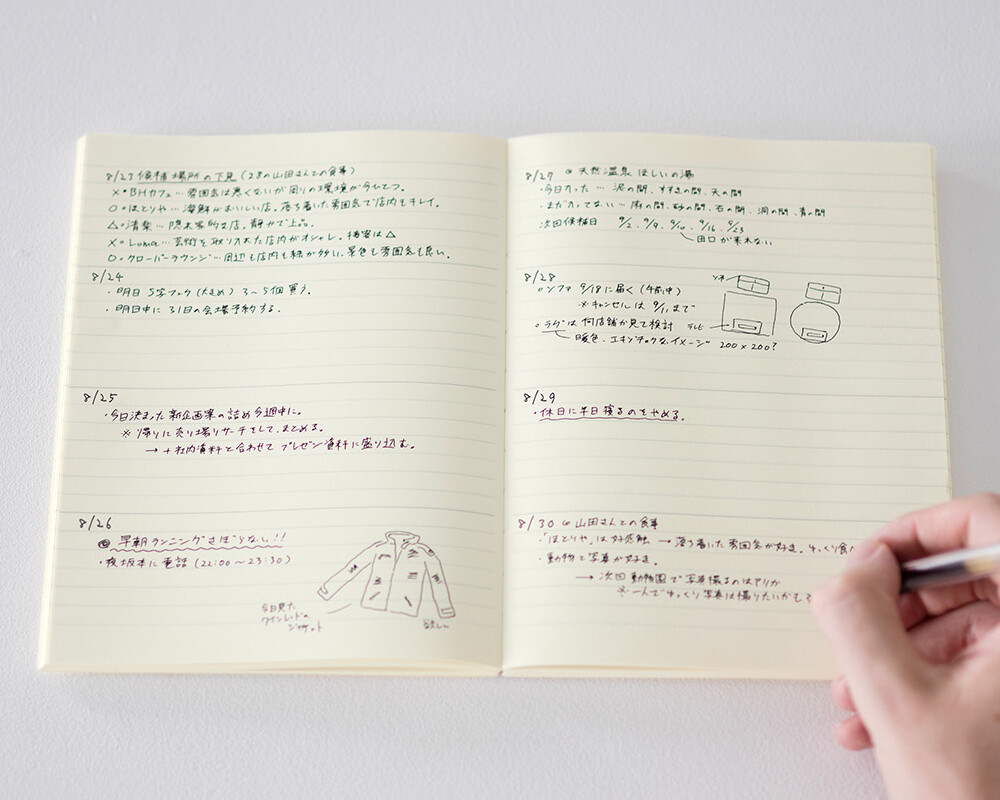 8/23 候補場所の下見 (28の山田さんとの食事)
×・BHカフェ… 雰囲気は悪くないが周りの環境が今ひとつ。
○・ほとりや… 海鮮がおいしい店。落ち着いた雰囲気で店内もキレイ。
△・清楽… 隠れ家的な店。静かで上品。
×・Luma… 芸術を取り入れた店内がオシャレ。接客は△
○・クローバーラウンジ… 周辺も店内も緑が多い、景色も雰囲気も良い。
8/24
・明日 S字フック(大きめ) 3〜5個買う。
・明日中に31日の会場予約する。
8/25
・今日決まった新企画案の詰め今週中に。
※帰りに売り場リサーチをして、まとめる。
→+社内資料と合わせてプレゼン資料に盛り込む。
8/26
早朝ランニングさぼらない!!
・夜坂本に電話 (22:00〜23:30)
今日見た
ワインレッドの
ジャケット
欲しい
8/27 @天然温泉 ほしいの湯
・今日入った… 泥の間、すすきの間、天の間
・まだ入ってない… 雨の間、砂の間、石の間、洞の間、青の間
次回候補日 9/2、9/9、9/10、9/16、9/23
田口が来れない
8/28
○ソファ 9/18に届く (午前中)
※キャンセルは 9/11まで
○ラグは何店舗か見て検討
暖色、エキゾチックなイメージ 200×200?
ソファ
テレビ
8/29
・休日に半日寝るのをやめる。
8/30 @山田さんとの食事
・「ほとりや」は好感触 → 落ち着いた雰囲気が好き。ゆっくり食
・動物と写真が好き。
→ 次回動物園で写真撮るのはアリか
※一人でゆっくり写真は撮りたいかも